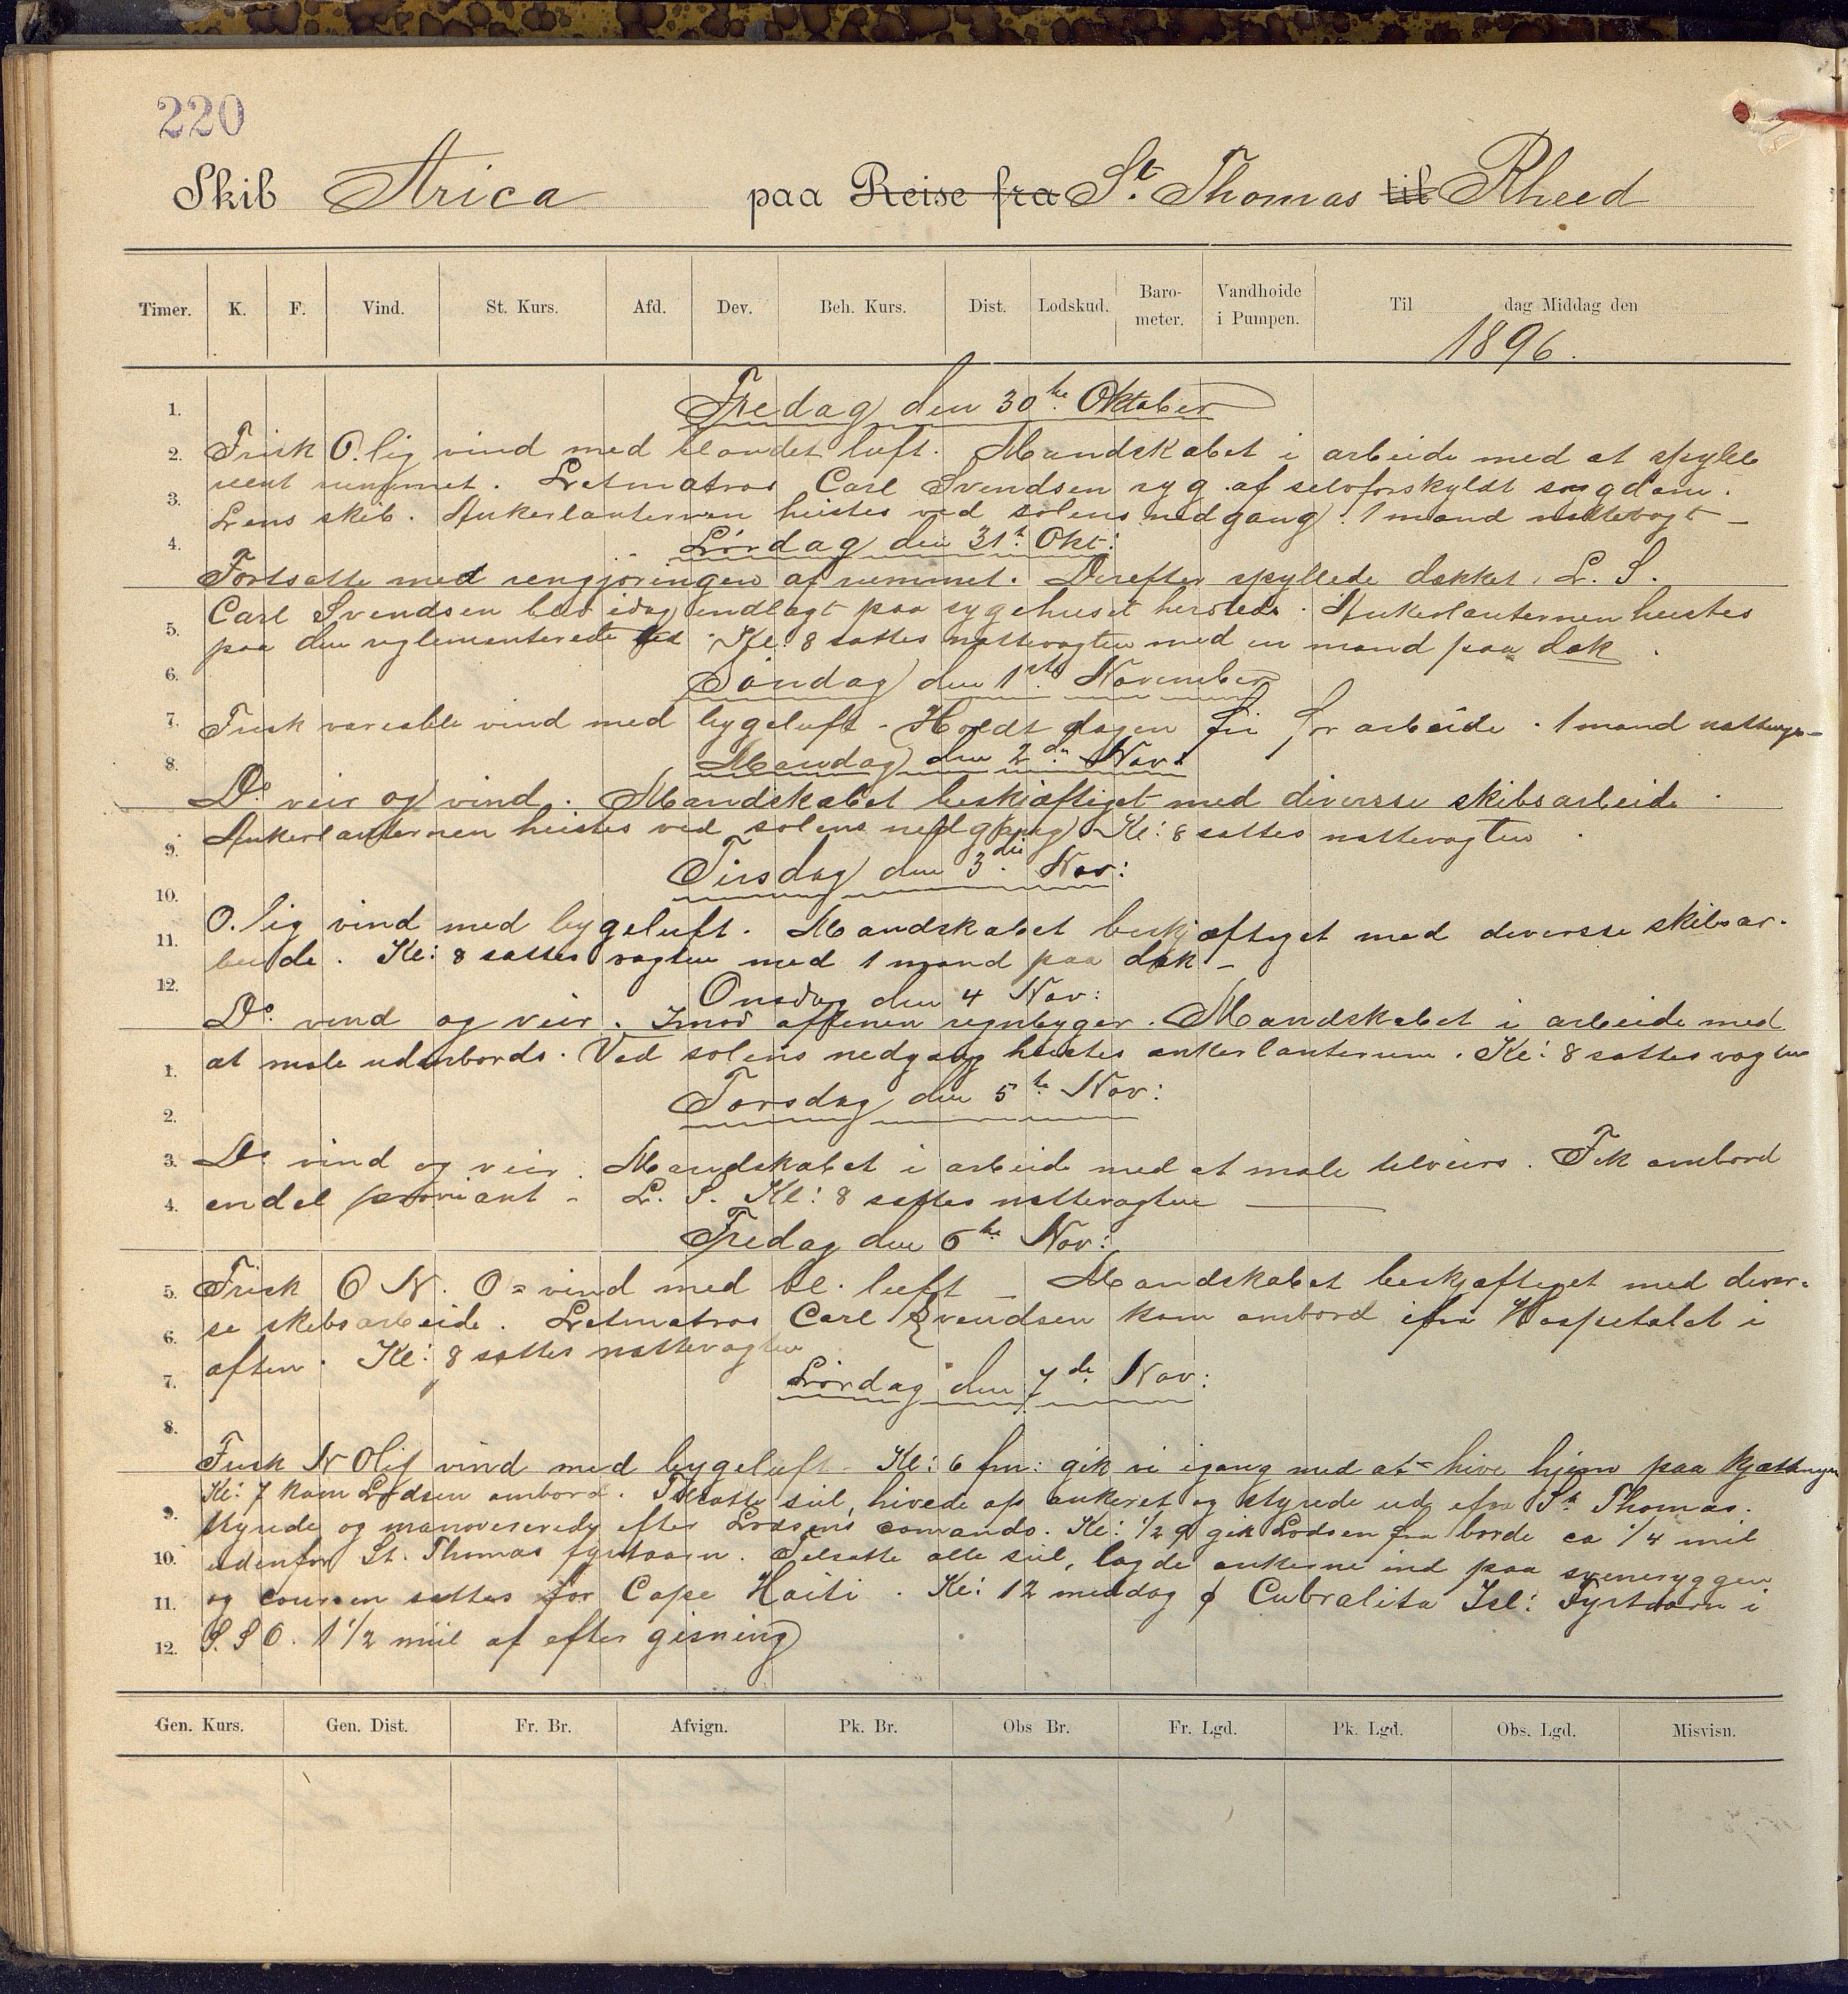 220
Skib Arica paa Reise fra St. Thomas til Rheed
Timer. K. F. Vind. St. Kurs. Afd. Dev. Beh. Kurs. Dist. Lodskud. Baro-meter. Vandhoide i Pumpen. Til dag Middag den
1896.
1. Fredag den 30te Oktober
2. Frisk O.lig vind med blandet luft. Mandskabet i arbeide med at spylle
reent rummet. Letmatros Carl Svendsen syg af selvforskyldt sygdom.
3. Lens skib. Ankerlanternen heistes ved solens nedgang. 1 mand nattevagt –
4. Lördag den 31t Okt:
Fortsatte med rengjøringen af rummet. Derefter spyllede dækket, L. S.
Carl Svendsen blev idag indlagt paa sygehuset hersteds. Ankerlanternen heistes
5. paa den reglementerede tid. Kl: 8 sattes nattevagten med en mand paa dæk.
6. Söndag den 1ste November
7. Frisk variable vind med bygeluft – Holdt dagen fri for arbeide. 1 mand
8. Mandag den 2den Nov:
Do veir og vind. Mandskabet beskjæftiget med diversse skibsarbeide.
9. Ankerlanternen heistes ved solens nedgang. Kl: 8 sattes nattevagten.
Tirsdag den 3die Nov:
10.
O.lig vind med bygeluft. Mandskabet beskjæftiget med diversse skibsar-
11. beide. Kl: 8 sattes vagten med 1 mand paa dæk –
12. Onsdag den 4 Nov:
Do. vind og veir. Imod aftenen regnbyger. Mandskabet i arbeide med
1. at male udenbords. Ved solens nedgang heistes ankerlanternen. Kl: 8 sattes vagten
Torsdag den 5te Nov:
2.
3. Do vind og veir. Mandskabet i arbeide med at male tilveirs. Fik ombord
4. endel proviant – L. S. Kl: 8 sattes nattevagten
Fredag den 6te Nov:
5. Frisk O N. O = vind med bl. luft – Mandskabet beskjæftiget med diver-
6. se skibsarbeide. Letmatros Carl Svendsen kom ombord ifra Hospitalet i
aften. Kl: 8 sattes nattevagten
7. Lördag den 7de Nov:
8.
Frisk N Olig vind med bygeluft – Kl: 6 fm: gik vi igang med at hive hjem paa kjættingen
Kl: 7 kom Lodsen ombord. Tilsatte siil, hivede op ankeret og styrede ud ifra St Thomas.
9. Styrede og manovererede efter Lodsens comando. Kl: 1/2 9 gik Lodsen fra borde ca 1/4 mil
10. udenfor St. Thomas fyrtaarn. Tilsatte alle siil, lagde ankerne ind paa svineryggen
11. og coursen sattes for Cape Haiti. Kl: 12 middag Cubralita Isl: Fyrtaarn i
12. S. S O. 1 1/2 miil af efter gisning
Gen. Kurs. Gen. Dist. Fr. Br. Afvign. Pk. Br. Obs Br. Fr. Lgd. Pk. Lgd. Obs. Lgd. Misvisn.